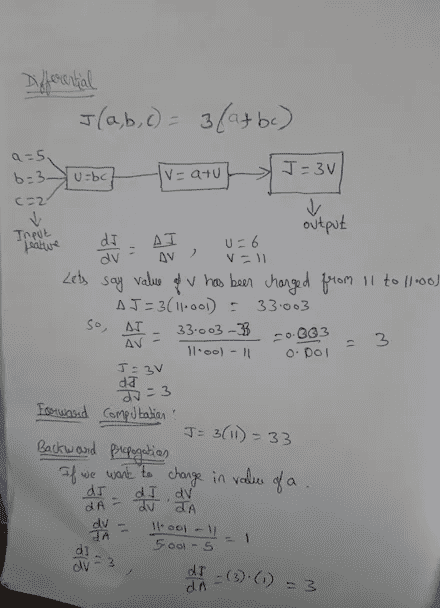 Differential
J(a,b,c) = 3(a+bc)
a=5
b=3
c=2
U=bc
V= a+U
J=3V
Input feature
output
dJ/dV = ΔJ/ΔV , U=6
V=11
Lets say value of V has been changed from 11 to 11.001
ΔJ=3(11.001) = 33.003
So, ΔJ/ΔV = 33.003-33/11.001-11 = 0.003/0.001 = 3
J=3V
dJ/dV = 3
Forward Computation:
J= 3(11) = 33
Backward Propogation
If we want to change in value of a.
dJ/dA = dJ/dV . dV/dA
dV/dA = 11.001-11/5.001-5 = 1
dJ/dV = 3 ,
dJ/dA = (3).(1) = 3